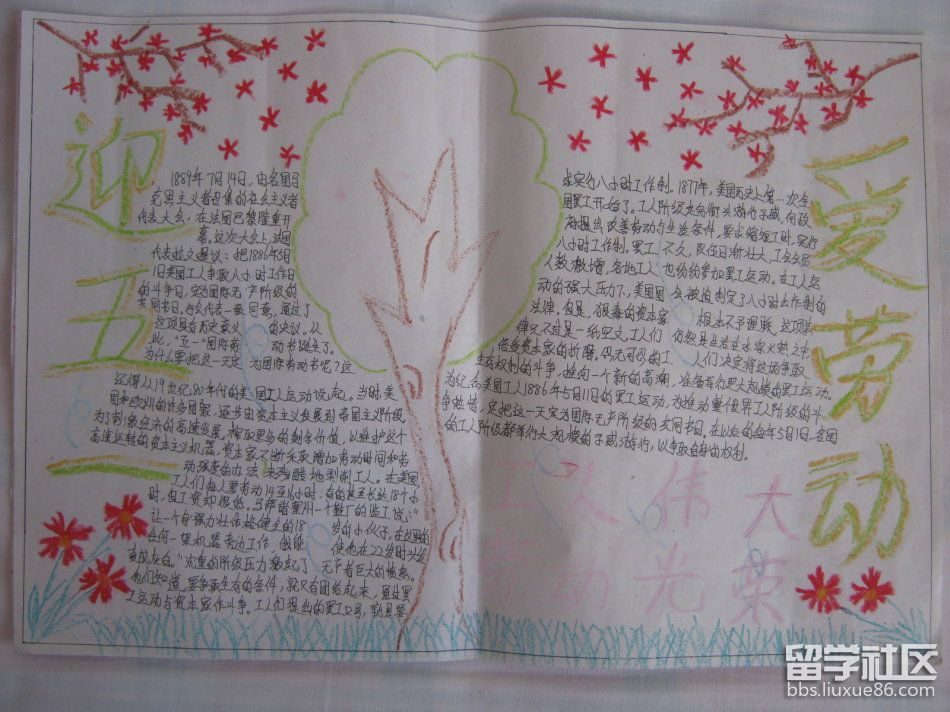 迎五一
1889年7月14日，由各国马
克思主义者召集的社会主义者
代表大会，在法国巴黎隆重开
幕。这次大会上，法国
代表拉文提议：把1886年5月
1日美国工人争取八小时工作日
的斗争日，定为国际无产阶级的
共同节日。与会代表一致同意，通过了
这项具有历史意义的决议。从
此，“五一”国际劳动节诞生了。
为什么要把这一天定为国际劳动节呢？这
还得从19世纪80年代的美国工人运动说起。当时，美
国和欧洲的许多国家，逐步由资本主义发展到帝国主义阶段，
为了刺激经济的高速发展，榨取更多的剩余价值，以维护这个
高速运转的资本主义机器，资本家不断采取增加劳动时间和劳
动强度的办法来残酷地剥削工人。在美国，
工人们每天要劳动14至16小时，有的甚至长达18个小
时，但工资却很低。马萨诸塞州一个鞋厂的监工说：“
让一个身强力壮体格健全的18岁的小伙子，在这里的
任何一架机器旁工作，我能够使他在22岁时头发
变成灰白。”沉重的阶级压迫激起了无产者巨大的愤怒。
他们知道，要争取生存的条件，就只有团结起来，通过罢
工运动与资本家作斗争。工人们提出的罢工口号，就是要
求实行八小时工作制。1877年，美国历史上第一次全
国罢工开始了。工人阶级走向街头游行示威，向政
府提出改善劳动与生活条件，要求缩短工时，实行
八小时工作制。罢工不久，队伍日渐壮大，工会会员
人数激增，各地工人也纷纷参加罢工运动。在工人运
动的强大压力下，美国国会被迫制定了八小时工作制的
法律。但是，狠毒的资本家根本不予理睬，这项法
律只不过是一纸空文，工人们仍然生活在水深火热之中，
倍受资本家的折磨。忍无可忍的工人们决定将这场争取
生存权利的斗争，推向一个新的高潮，准备举行更大规模的罢工运动。
为纪念美国工人1886年5月1日的罢工运动，为推动世界工人阶级的斗
争热情，定把这一天定为国际无产阶级的共同节日。在以后的每年5月1日，各国
的工人阶级都举行大规模的示威游行，以争取自身的权利。
爱劳动
工人伟大
劳动光荣
留学社区
bbs.liuxue86.com